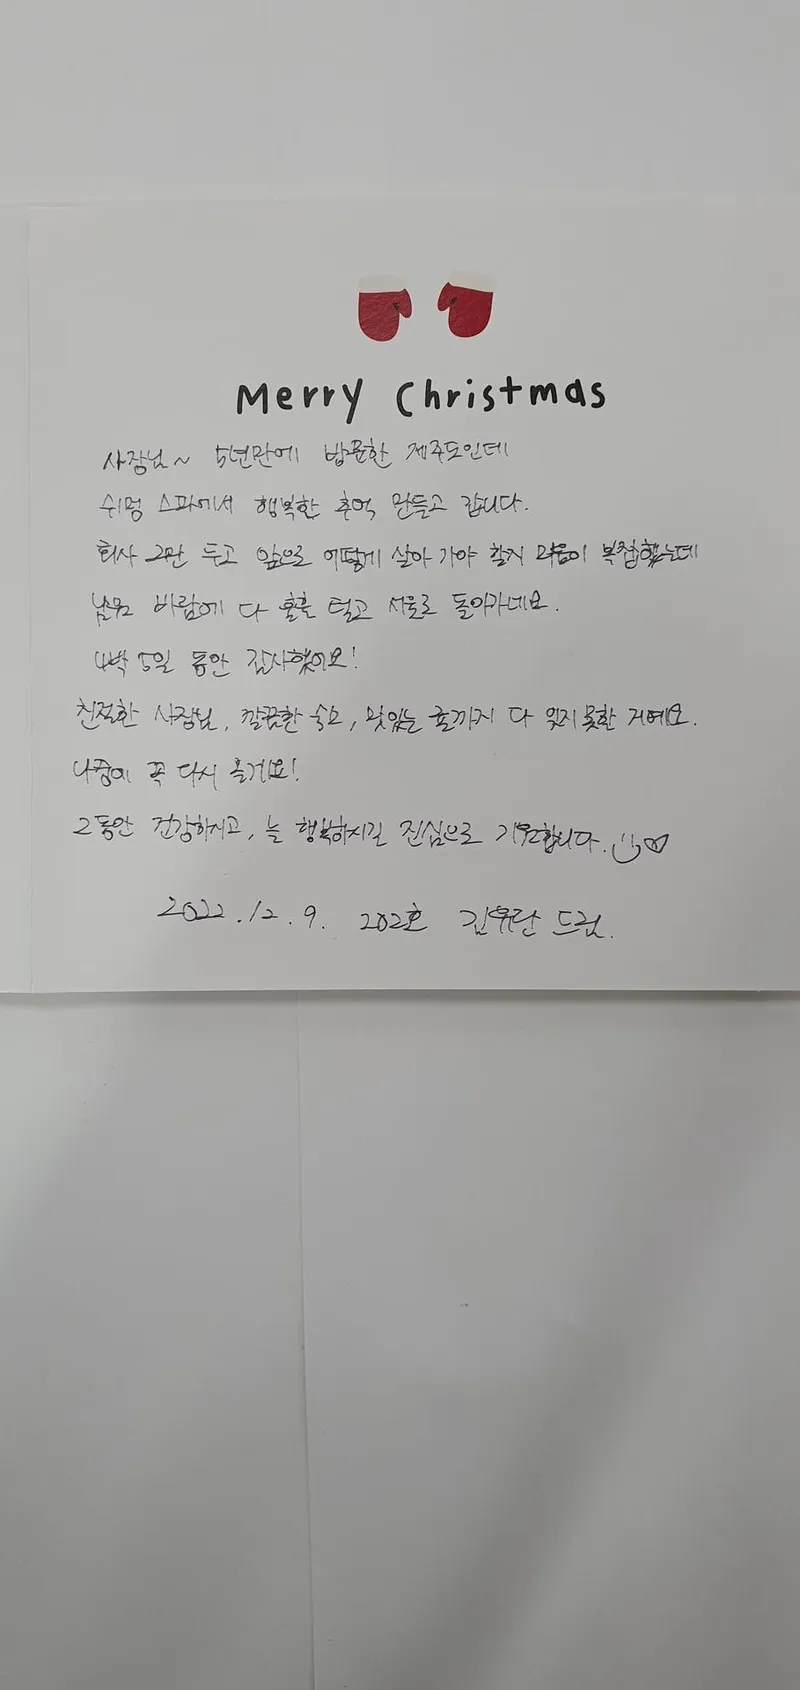 Merry Christmas
사장님~ 5년만에 방문한 제주도인데
쉬멍 스파에서 행복한 추억 만들고 갑니다.
회사 그만 두고 앞으로 어떻게 살아 가야 할지 마음이 복잡했는데
바람에 다 훌훌 털고 서울로 돌아가네요.
4박 5일 동안 감사했어요!
친절한 사장님, 깔끔한 숙소, 맛있는 귤까지 다 잊지 못할 거예요.
나중에 꼭 다시 올게요!
그동안 건강하시고, 늘 행복하시길 진심으로 기원합니다.
2022.12.9. 202호 드림.